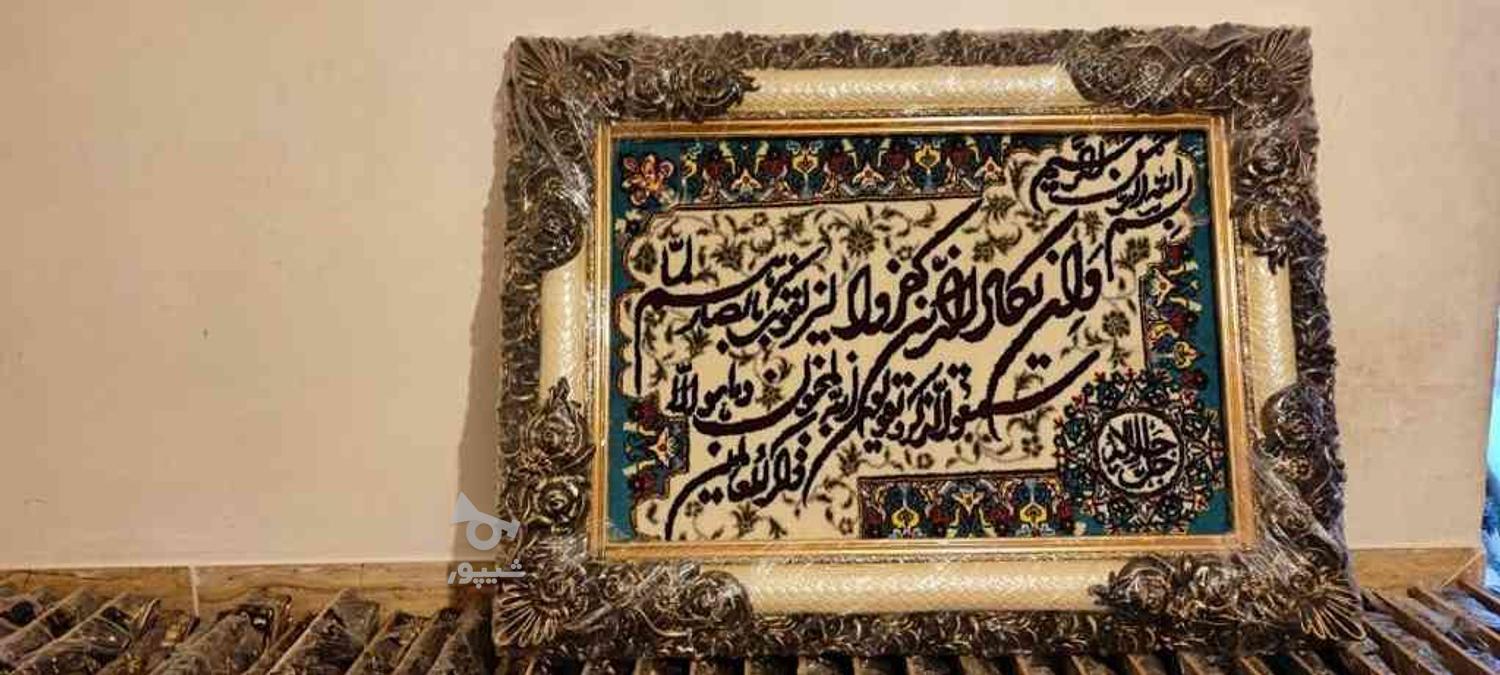 بسم الله الرحمن الرحیم
وان یکاد الذین کفروا لیزلقونک بابصارهم لما
سمعوا الذکر و یقولون انه لمجنون وما هو الا
ذکر للعالمین
جل جلاله
شیپور